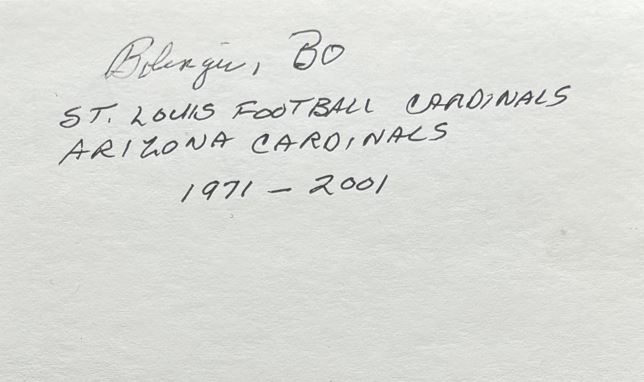 Bolinger, BO
ST. LOUIS FOOTBALL CARDINALS
ARIZONA CARDINALS
1971 - 2001